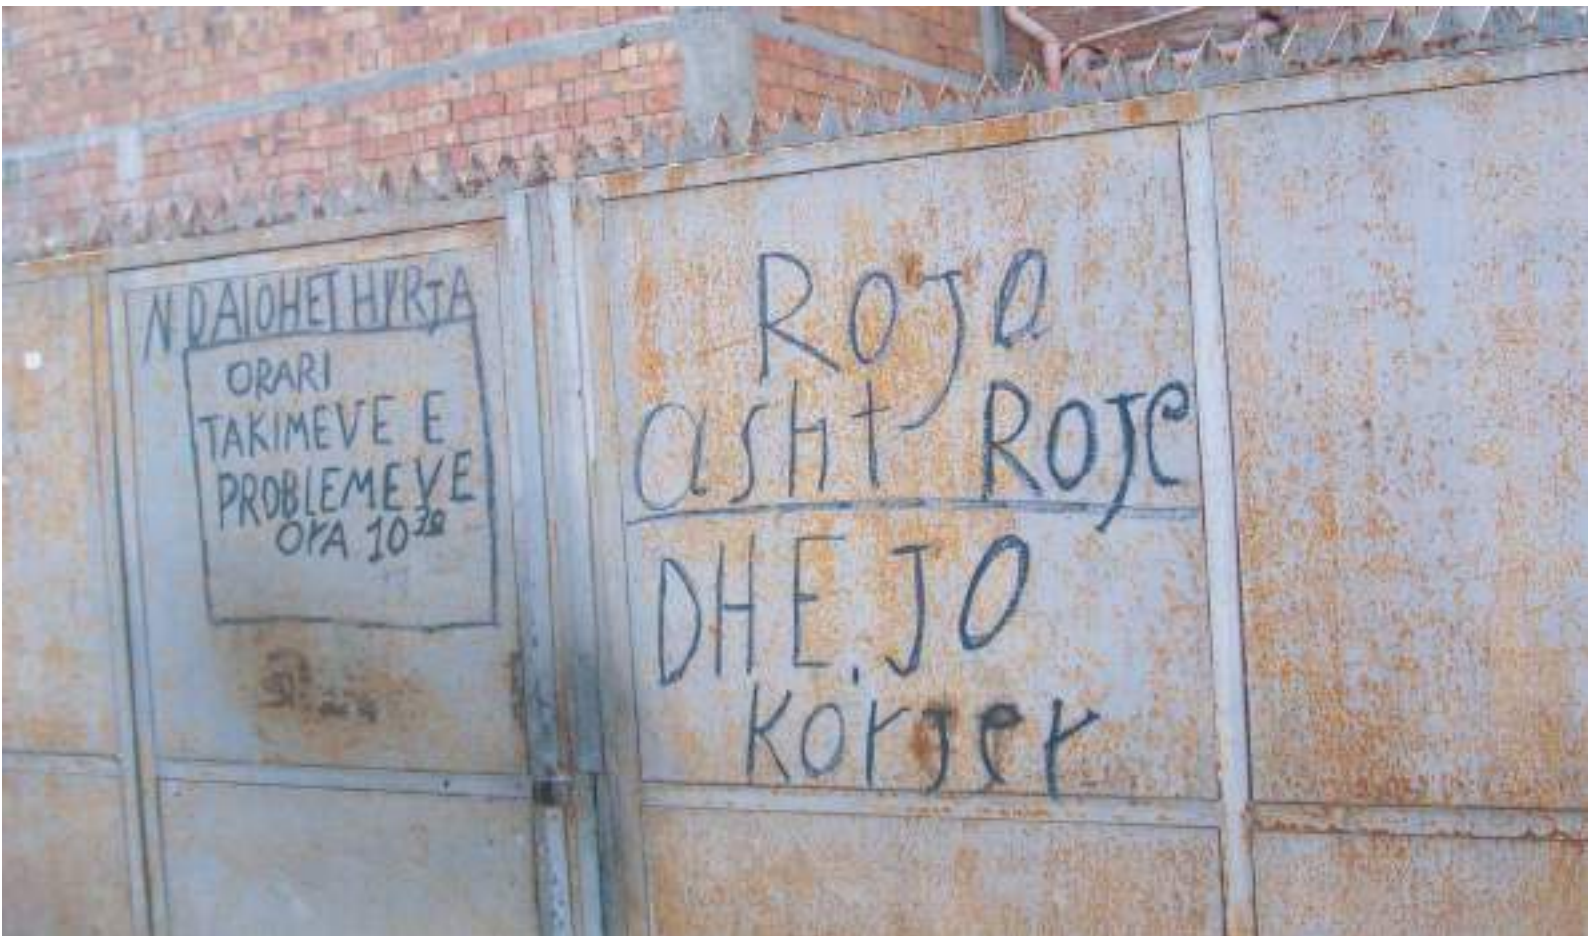 NDALOHET HYRJA
ORARI
TAKIMEVE E
PROBLEMEVE
OrA 10³⁰
ROJA
asht ROJE
DHE.JO
korjer